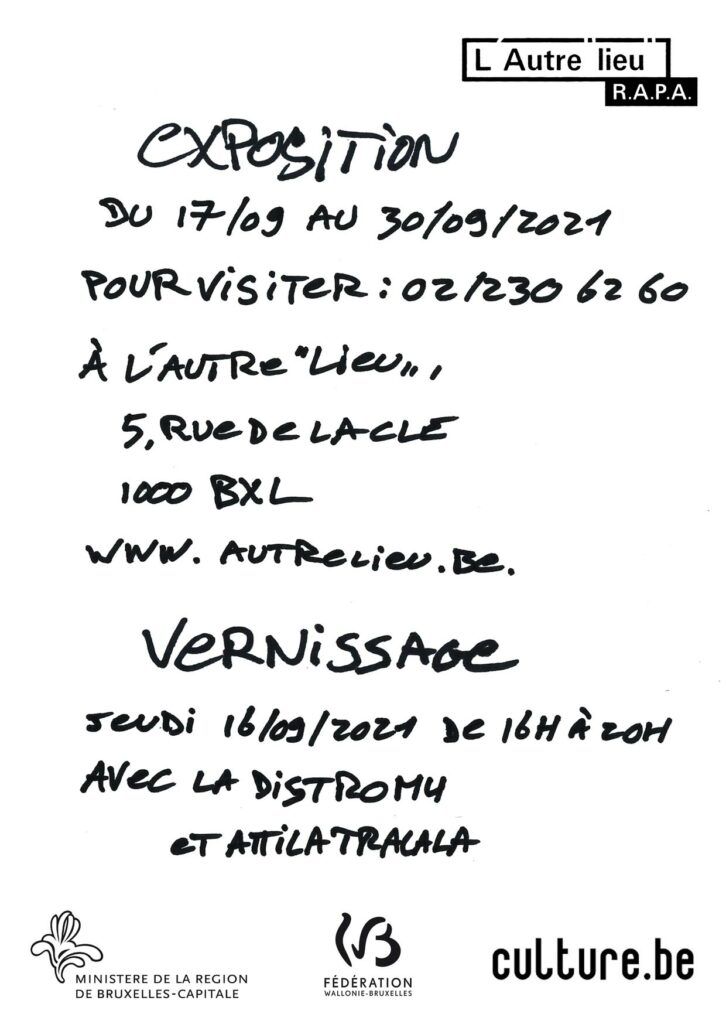 L'Autre "lieu"
R.A.P.A.
EXPOSITION
DU 17/09 AU 30/09/2021
POUR VISITER : 02/230 62 60
À L'AUTRE "LIEU",
5, RUE DE LA CLÉ
1000 BXL
WWW. AUTRELIEU.BE.
VERNISSAGE
JEUDI 16/09/2021 DE 16H À 20H
AVEC LA DISTROMY
ET ATTILA TRALALA
MINISTERE DE LA REGION
DE BRUXELLES-CAPITALE
FÉDÉRATION
WALLONIE-BRUXELLES
culture.be